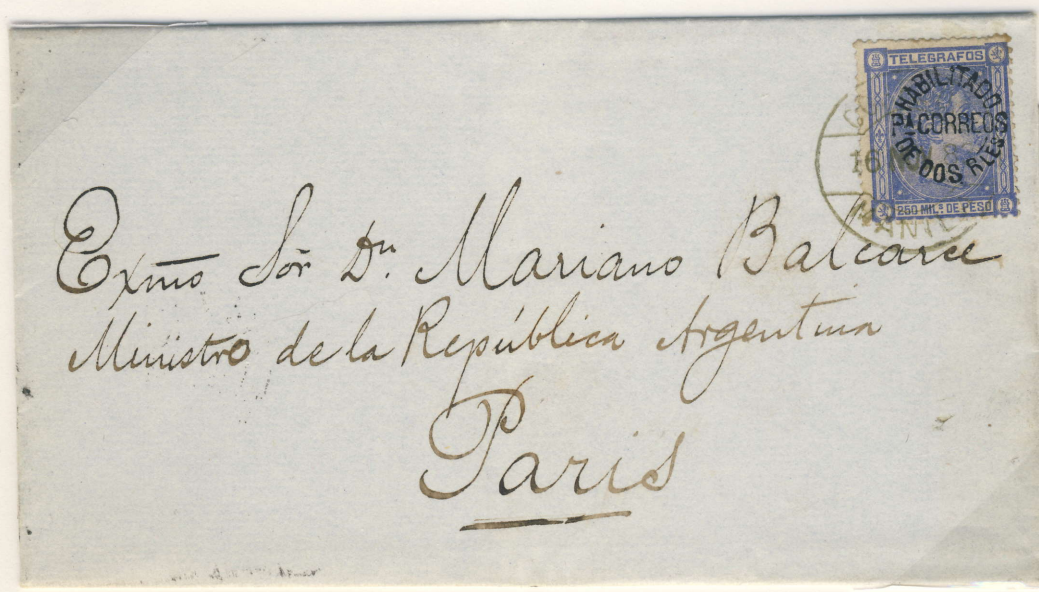 TELEGRAFOS
HABILITADO
PA CORREOS
DE DOS RLES
250 MILS DE PESO
16
MANILA
Exmo Sōr Dn. Mariano Balcarce
Ministro de la República Argentina
Paris